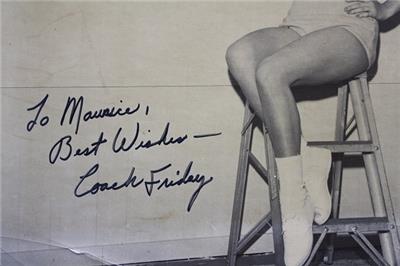 To Maurice,
Best Wishes —
Coach Friday